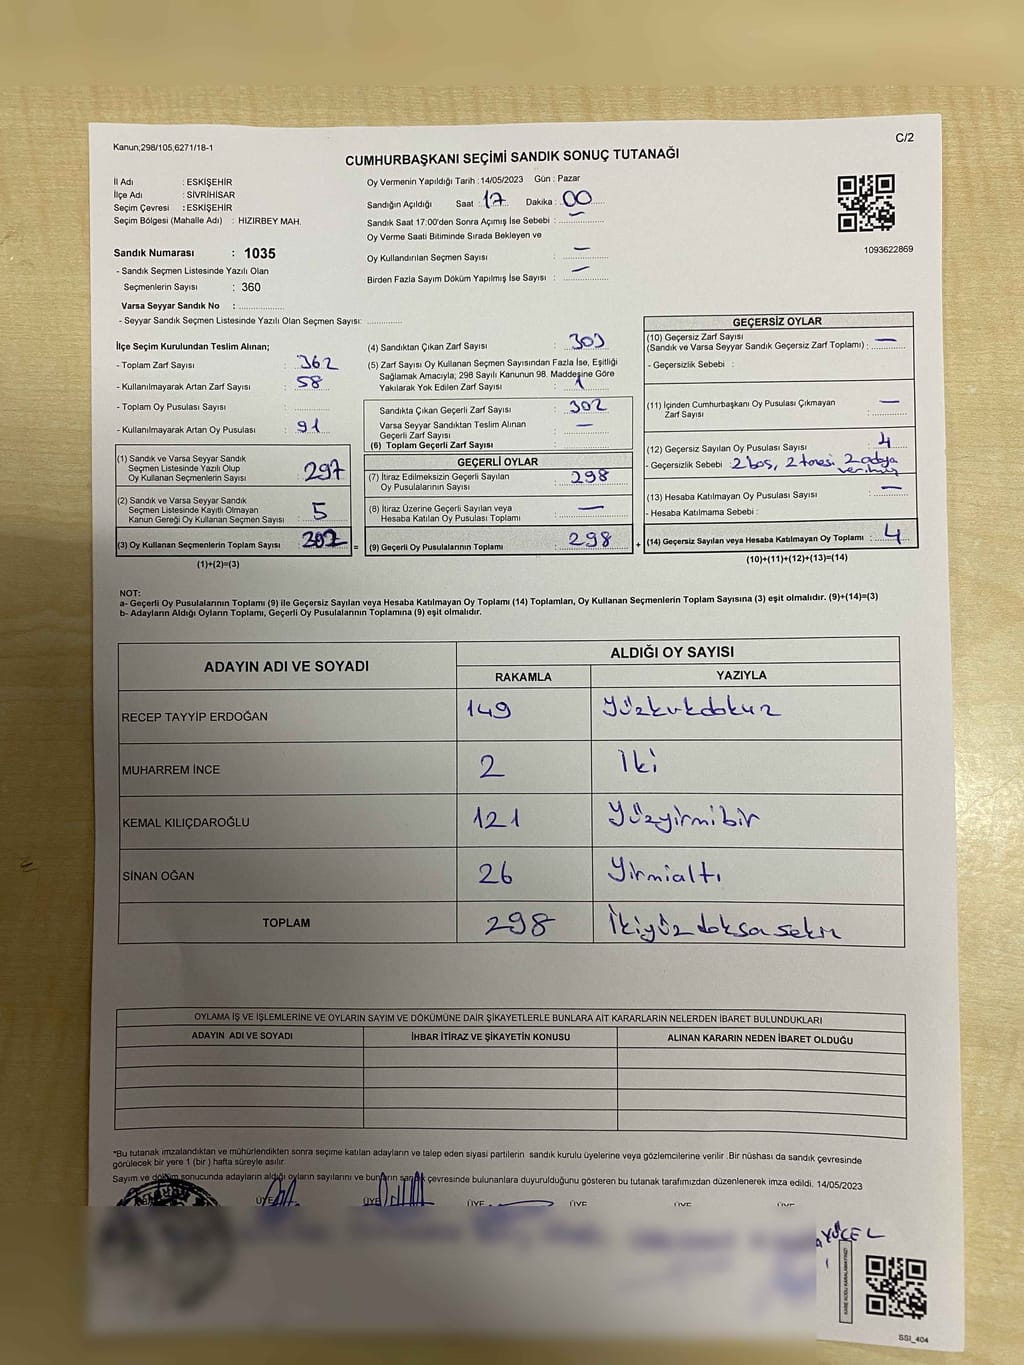 Kanun,298/105,6271/18-1
C/2
CUMHURBAŞKANI SEÇİMİ SANDIK SONUÇ TUTANAĞI
İl Adı : ESKİŞEHİR
İlçe Adı : SİVRİHİSAR
Seçim Çevresi : ESKİŞEHİR
Seçim Bölgesi (Mahalle Adı) : HIZIRBEY MAH.
Sandık Numarası : 1035
- Sandık Seçmen Listesinde Yazılı Olan
Seçmenlerin Sayısı : 360
Varsa Seyyar Sandık No :
- Seyyar Sandık Seçmen Listesinde Yazılı Olan Seçmen Sayısı:
Oy Vermenin Yapıldığı Tarih : 14/05/2023 Gün : Pazar
Sandığın Açıldığı Saat : 17 Dakika : 00
Sandık Saat 17:00'den Sonra Açımış İse Sebebi : —
Oy Verme Saati Bitiminde Sırada Bekleyen ve
Oy Kullandırılan Seçmen Sayısı : —
Birden Fazla Sayım Döküm Yapılmış İse Sayısı : —
1093622869
İlçe Seçim Kurulundan Teslim Alınan;
- Toplam Zarf Sayısı : 362
- Kullanılmayarak Artan Zarf Sayısı : 58
- Toplam Oy Pusulası Sayısı :
- Kullanılmayarak Artan Oy Pusulası : 91
(1) Sandık ve Varsa Seyyar Sandık
Seçmen Listesinde Yazılı Olup
Oy Kullanan Seçmenlerin Sayısı : 297
(2) Sandık ve Varsa Seyyar Sandık
Seçmen Listesinde Kayıtlı Olmayan
Kanun Gereği Oy Kullanan Seçmen Sayısı : 5
(3) Oy Kullanan Seçmenlerin Toplam Sayısı : 302 =
(1)+(2)=(3)
(4) Sandıktan Çıkan Zarf Sayısı : 303
(5) Zarf Sayısı Oy Kullanan Seçmen Sayısından Fazla İse, Eşitliği
Sağlamak Amacıyla; 298 Sayılı Kanunun 98. Maddesine Göre
Yakılarak Yok Edilen Zarf Sayısı : 1
Sandıkta Çıkan Geçerli Zarf Sayısı : 302
Varsa Seyyar Sandıktan Teslim Alınan
Geçerli Zarf Sayısı : —
(6) Toplam Geçerli Zarf Sayısı
GEÇERLİ OYLAR
(7) İtiraz Edilmeksizin Geçerli Sayılan
Oy Pusulalarının Sayısı : 298
(8) İtiraz Üzerine Geçerli Sayılan veya
Hesaba Katılan Oy Pusulası Toplamı : —
(9) Geçerli Oy Pusulalarının Toplamı : 298 +
GEÇERSİZ OYLAR
(10) Geçersiz Zarf Sayısı
(Sandık ve Varsa Seyyar Sandık Geçersiz Zarf Toplamı) : —
- Geçersizlik Sebebi :
(11) İçinden Cumhurbaşkanı Oy Pusulası Çıkmayan
Zarf Sayısı : —
(12) Geçersiz Sayılan Oy Pusulası Sayısı : 4
- Geçersizlik Sebebi : 2 boş, 2 tanesi 2 adaya
verilmiş
(13) Hesaba Katılmayan Oy Pusulası Sayısı : —
- Hesaba Katılmama Sebebi :
(14) Geçersiz Sayılan veya Hesaba Katılmayan Oy Toplamı : 4
(10)+(11)+(12)+(13)=(14)
NOT:
a- Geçerli Oy Pusulalarının Toplamı (9) ile Geçersiz Sayılan veya Hesaba Katılmayan Oy Toplamı (14) Toplamları, Oy Kullanan Seçmenlerin Toplam Sayısına (3) eşit olmalıdır. (9)+(14)=(3)
b- Adayların Aldığı Oyların Toplamı, Geçerli Oy Pusulalarının Toplamına (9) eşit olmalıdır.
ADAYIN ADI VE SOYADI
ALDIĞI OY SAYISI
RAKAMLA YAZIYLA
RECEP TAYYİP ERDOĞAN 149 Yüzkırkdokuz
MUHARREM İNCE 2 İki
KEMAL KILIÇDAROĞLU 121 Yüzyirmibir
SİNAN OĞAN 26 Yirmialtı
TOPLAM 298 İkiyüz doksan sekiz
OYLAMA İŞ VE İŞLEMLERİNE VE OYLARIN SAYIM VE DÖKÜMÜNE DAİR ŞİKAYETLERLE BUNLARA AİT KARARLARIN NELERDEN İBARET BULUNDUKLARI
ADAYIN ADI VE SOYADI İHBAR İTİRAZ VE ŞİKAYETİN KONUSU ALINAN KARARIN NEDEN İBARET OLDUĞU
*Bu tutanak imzalandıktan ve mühürlendikten sonra seçime katılan adayların ve talep eden siyasi partilerin sandık kurulu üyelerine veya gözlemcilerine verilir .Bir nüshası da sandık çevresinde
görülecek bir yere 1 (bir ) hafta süreyle asılır.
Sayım ve döküm sonucunda adayların aldığı oyların sayılarını ve bunların sandık çevresinde bulunanlara duyurulduğunu gösteren bu tutanak tarafımızdan düzenlenerek imza edildi. 14/05/2023
ÜYE ÜYE ÜYE ÜYE ÜYE ÜYE
YÜCEL
SSI_404